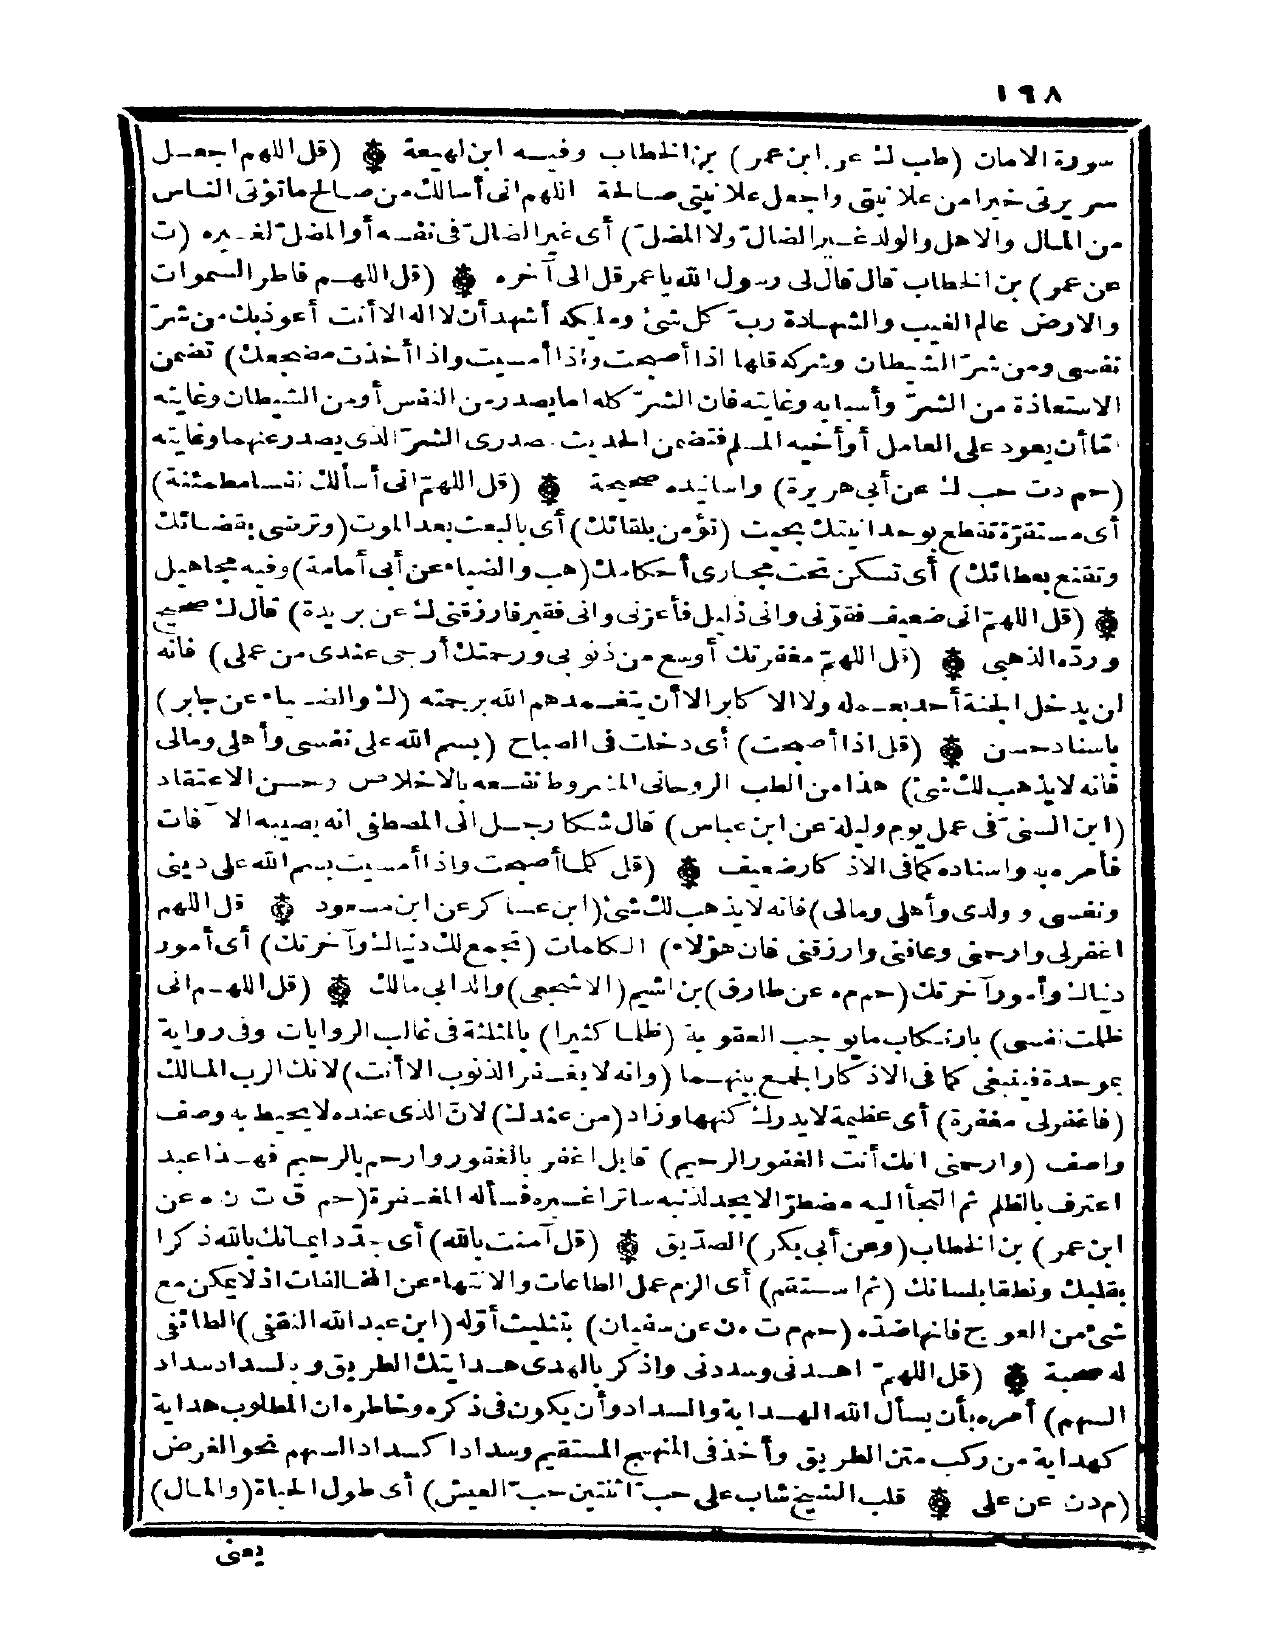 ١٩٨
سورة الامان (طب ك عن ابن عمر) بن الخطاب وفيه ابن لهيعة ۞ (قل اللهم اجعل
سريرتى خيرا من علانيتى واجعل علانيتى صالحة اللهم انى أسالك من صالح ما تؤتى الناس
من المال والاهل والولد غير الضال ولا المضل) أى غير الضال فى نفسه أو المضل لغيره (ت
عن عمر) بن الخطاب قال قال لى رسول الله يا عمر قل الى آخره ۞ (قل اللهم فاطر السموات
والارض عالم الغيب والشهادة رب كل شئ ومليكه أشهد أن لا اله الا أنت أعوذ بك من شر
نفسى ومن شر الشيطان وشركه قلها اذا أصبحت واذا أمسيت واذا أخذت مضجعك) تضمن
الاستعاذة من الشر وأسبابه وغايته فان الشر كله اما يصدر من النفس أو من الشيطان وغايته
اما أن يعود على العامل أو أخيه المسلم فتضمن الحديث مصدرى الشر الذى يصدر عنهما وغايته
(حم د ت حب ك عن أبى هريرة) واسانيده صحيحة ۞ (قل اللهم انى أسألك نفسا مطمئنة)
أى مستقرة تقطع بوحدانيتك بحيث (تؤمن بلقائك) أى بالبعث بعد الموت (وترضى بقضائك
وتقنع بعطائك) أى تسكن تحت مجارى أحكامك (هب والضياء عن أبى أمامة) وفيه مجاهيل
۞ (قل اللهم انى ضعيف فقونى وانى ذليل فأعزنى وانى فقير فارزقنى ك عن بريدة) قال ك صحيح
ورده الذهبى ۞ (قل اللهم مغفرتك أوسع من ذنوبى ورحمتك أرجى عندى من عملى) فانه
لن يدخل الجنة أحد بعمله ولا الاكابر الا أن يتغمدهم الله برحمته (ك والضياء عن جابر)
باسناد حسن ۞ (قل اذا أصبحت) أى دخلت فى الصباح (بسم الله على نفسى وأهلى ومالى
فانه لا يذهب لك شئ) هذا من الطب الروحانى المشروط نفعه بالاخلاص وحسن الاعتقاد
(ابن السنى فى عمل يوم وليلة عن ابن عباس) قال شكا رجل الى المصطفى انه يصيبه الآفات
فأمره به واسناده كما فى الاذكار ضعيف ۞ (قل كلما أصبحت واذا أمسيت بسم الله على دينى
ونفسى وولدى وأهلى ومالى) فانه لا يذهب لك شئ (ابن عساكر عن ابن مسعود ۞ قل اللهم
اغفر لى وارحمنى وعافنى وارزقنى فان هؤلاء) الكلمات (تجمع لك دنياك وآخرتك) أى أمور
دنياك وأمور آخرتك (حم م ه عن طارق) بن اشيم (الاشجعى) والد ابى مالك ۞ (قل اللهم انى
ظلمت نفسى) بارتكاب ما يوجب العقوبة (ظلما كثيرا) بالمثلثة فى غالب الروايات وفى رواية
بموحدة فينبغى كما فى الاذكار الجمع بينهما (وانه لا يغفر الذنوب الا أنت) لانك الرب المالك
(فاغفر لى مغفرة) أى عظيمة لا يدرك كنهها وزاد (من عندك) لان الذى عنده لا يحيط به وصف
واصف (وارحمنى انك أنت الغفور الرحيم) قابل اغفر بالغفور وارحم بالرحيم فهذا عبد
اعترف بالظلم ثم التجأ اليه مضطرا لا يجد لذنبه ساترا غيره فسأله المغفرة (حم ق ت ن ه عن
ابن عمر) بن الخطاب (وعن أبى بكر) الصديق ۞ (قل آمنت بالله) أى جدد ايمانك بالله ذكرا
بقلبك ونطقا بلسانك (ثم استقم) أى الزم عمل الطاعات والانتهاء عن المخالفات اذ لا يمكن مع
شئ من العوج فانها ضده (حم م ت ه ن عن سفيان) بتثليث أوله (ابن عبد الله الثقفى) الطائفى
له صحبة ۞ (قل اللهم اهدنى وسددنى واذكر بالهدى هدايتك الطريق وبالسداد سداد
السهم) أمره بأن يسأل الله الهداية والسداد وأن يكون فى ذكره وخاطره ان المطلوب هداية
كهداية من ركب متن الطريق وأخذ فى المنهج المستقيم وسدادا كسداد السهم نحو الغرض
(م د ن عن على ۞ قلب الشيخ شاب على حب اثنتين حب العيش) أى طول الحياة (والمال)
يعنى